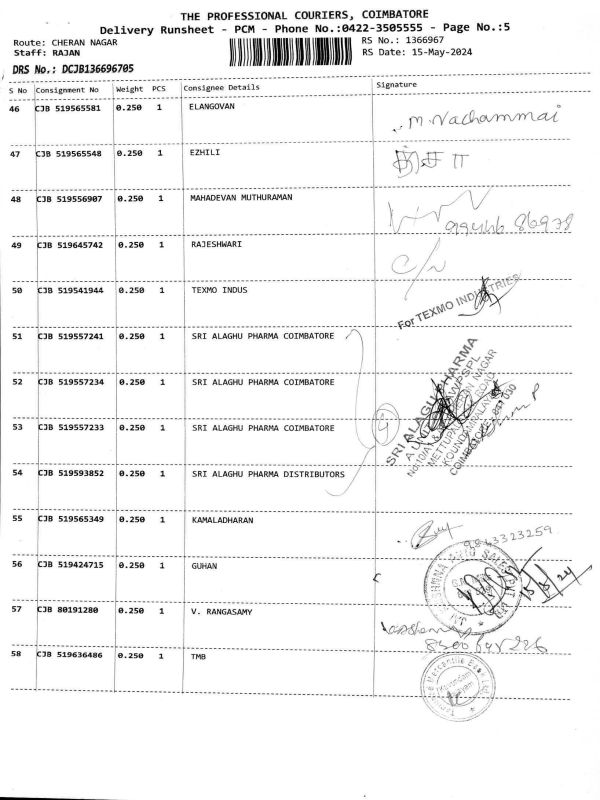 THE PROFESSIONAL COURIERS, COIMBATORE
Delivery Runsheet - PCM - Phone No.:0422-3505555 - Page No.:5
Route: CHERAN NAGAR RS No.: 1366967
Staff: RAJAN RS Date: 15-May-2024
DRS No.: DCJB136696705
S No Consignment No Weight PCS Consignee Details Signature
46 CJB 519565581 0.250 1 ELANGOVAN M. Nachammai
47 CJB 519565548 0.250 1 EZHILI
48 CJB 519556907 0.250 1 MAHADEVAN MUTHURAMAN 99446 86978
49 CJB 519645742 0.250 1 RAJESHWARI C/N
50 CJB 519541944 0.250 1 TEXMO INDUS For TEXMO INDUSTRIES
51 CJB 519557241 0.250 1 SRI ALAGHU PHARMA COIMBATORE
52 CJB 519557234 0.250 1 SRI ALAGHU PHARMA COIMBATORE
53 CJB 519557233 0.250 1 SRI ALAGHU PHARMA COIMBATORE 4
54 CJB 519593852 0.250 1 SRI ALAGHU PHARMA DISTRIBUTORS
SRI ALAGHU PHARMA
A UNIT
NAGAR
METTUPALAYAM ROAD
KOUNDAMPALAYAM
COIMBATORE - 641 030
55 CJB 519565349 0.250 1 KAMALADHARAN 9843323259
56 CJB 519424715 0.250 1 GUHAN 15/5/24
57 CJB 80191280 0.250 1 V. RANGASAMY
58 CJB 519636486 0.250 1 TMB
Tamilnad Mercantile Bank Ltd